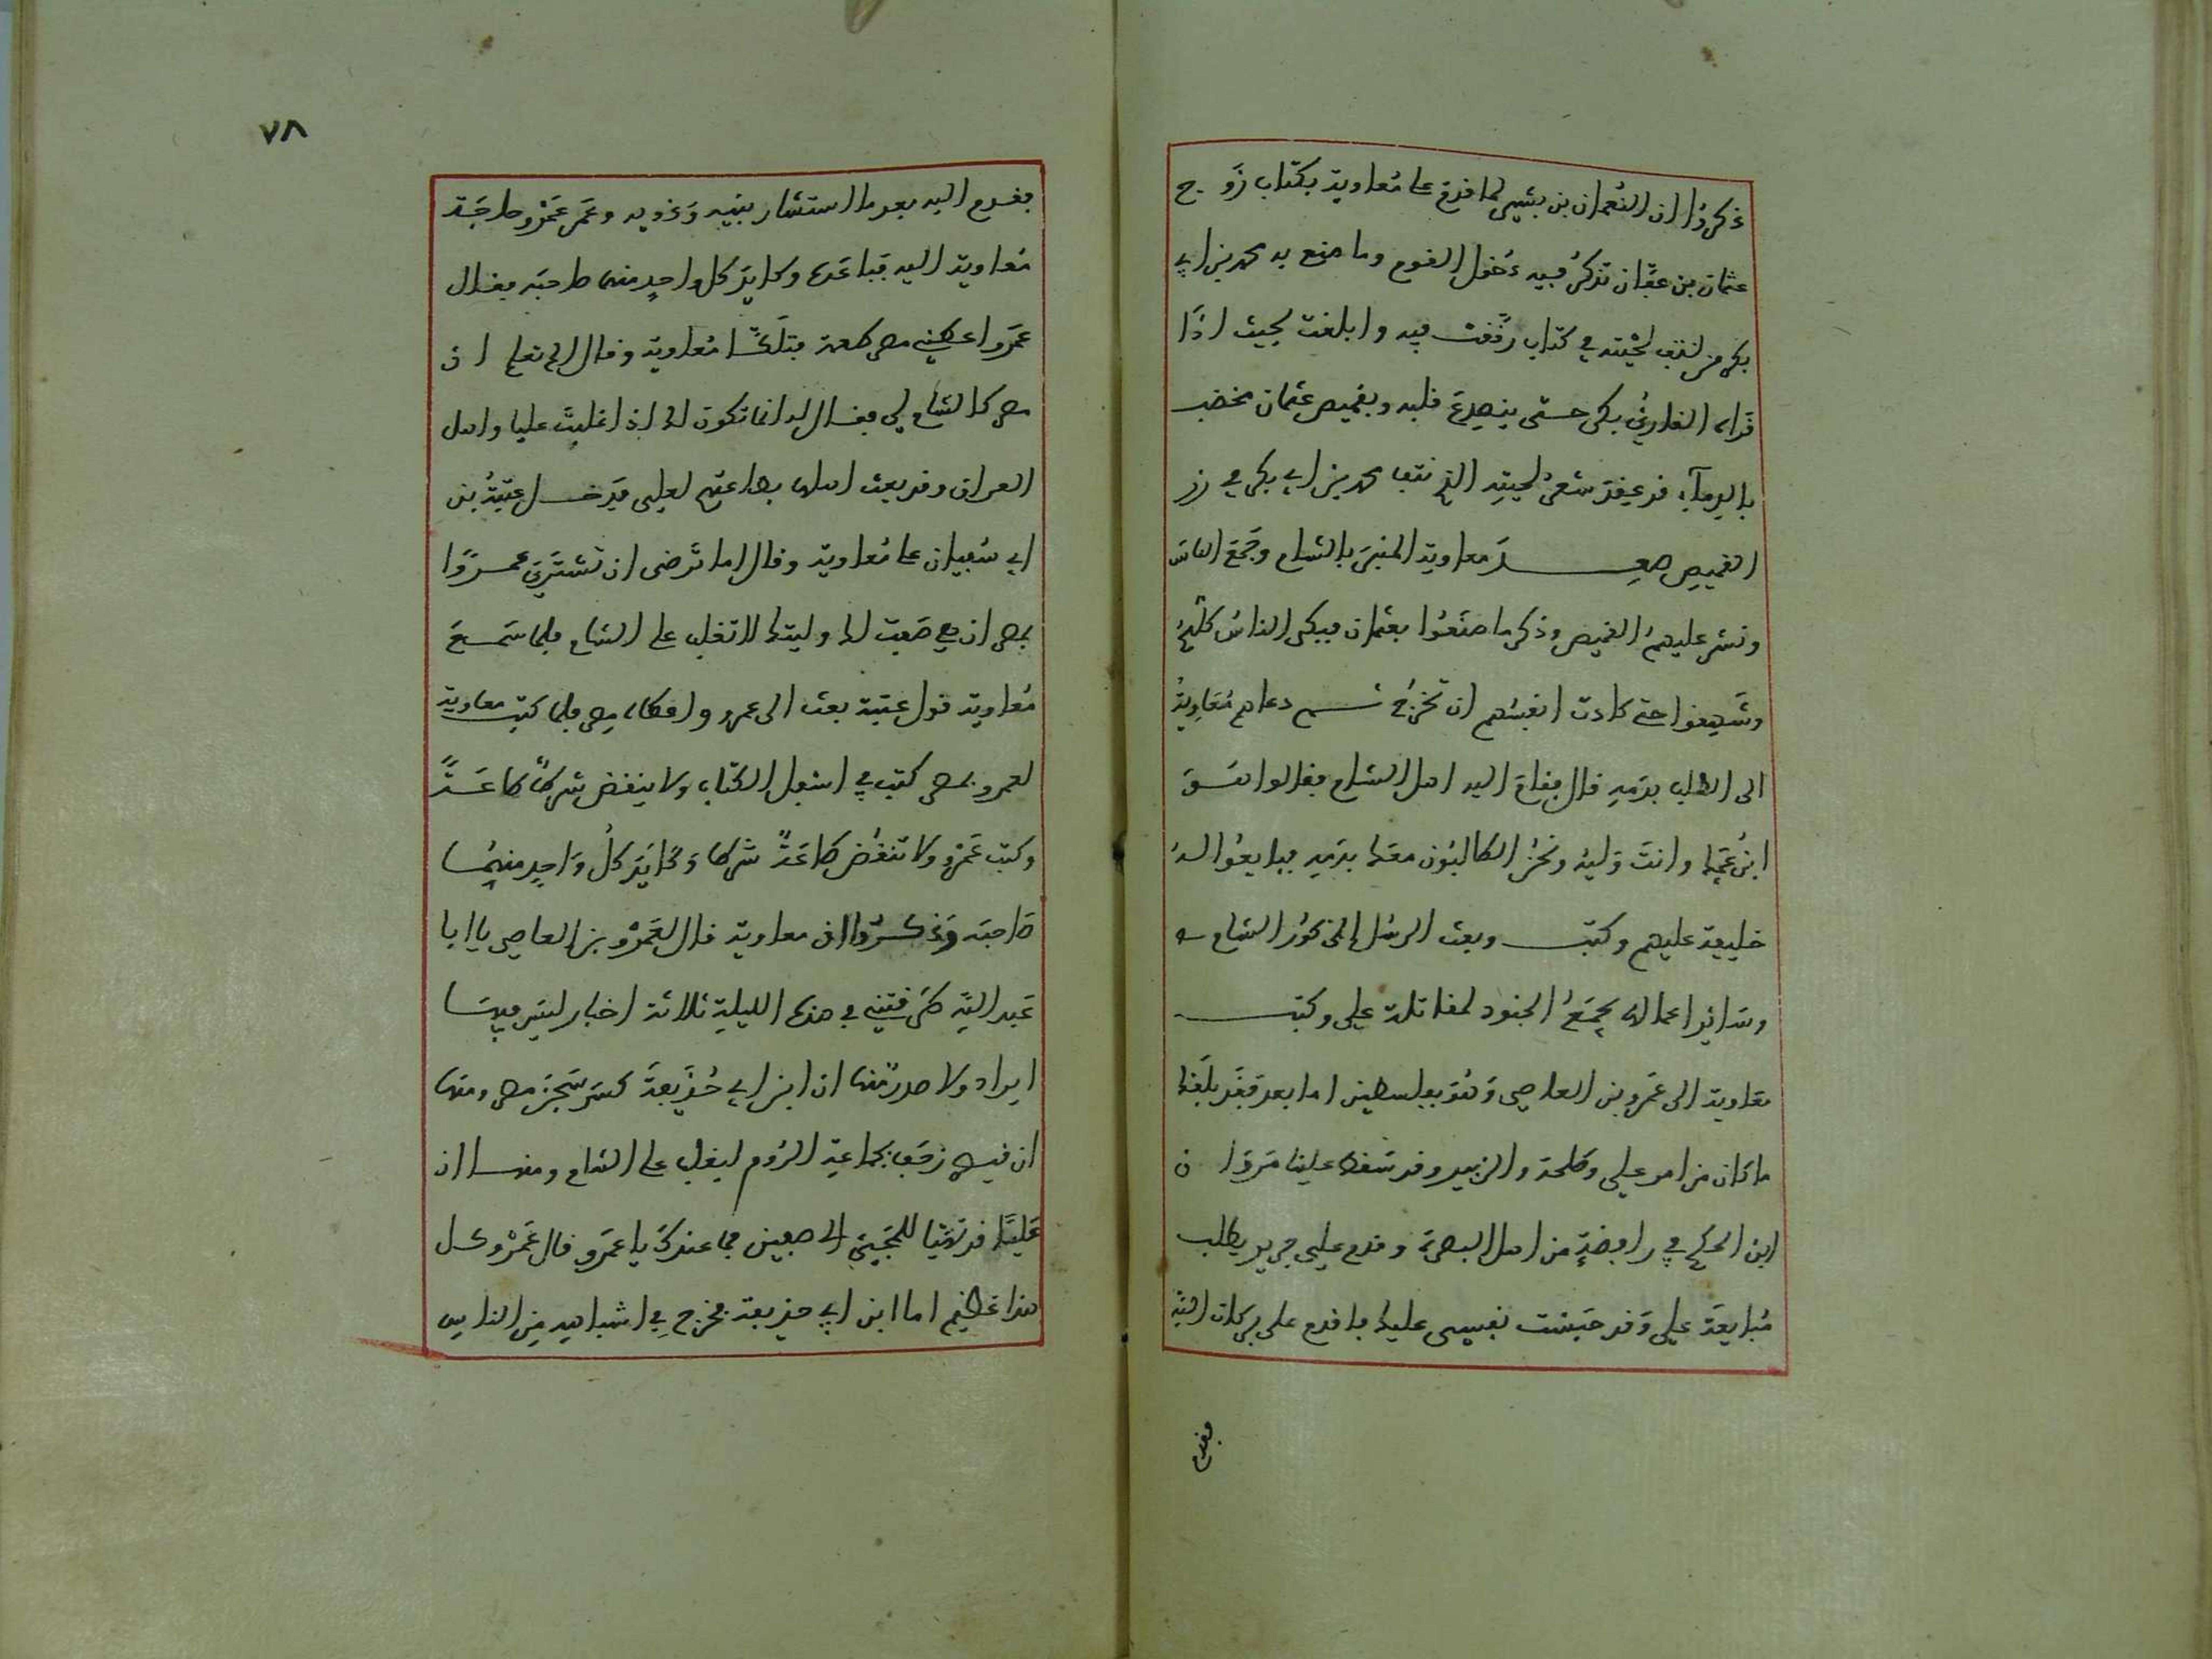 ذكروا ان النعمان بن بشير لما قدم على معاوية بكتاب زوج
عثمان بن عفان تذكر فيه دخول القوم وما صنع به محمد بن ابي
بكر من نتف لحيته في كتاب رققت فيه وابلغت بحيث اذا
قراه القارئ بكى حتى ينصدع قلبه وبقميص عثمان مخضب
بالدماء قد عقد شعر لحيته الذي نتف محمد بن ابي بكر في زر
القميص صعد معاوية المنبر بالشام وجمع الناس
ونشر عليهم القميص وذكر ما صنعوا بعثمان فبكى الناس كلهم
وشهقوا حتى كادت انفسهم ان تخرج ثم دعاهم معاوية
الى الطلب بدمه قال فقام اليه اهل الشام فقالوا هو
ابن عمك وانت وليه ونحن الطالبون معك بدمه فبايعوا له
خليفة عليهم وكتب وبعث الرسل الى كور الشام
وسائر اعماله يجمع الجنود لمقاتلة علي وكتب
معاوية الى عمرو بن العاصي وهو بفلسطين اما بعد فقد بلغك
ما كان من امر علي وطلحة والزبير وقد سقط علينا مروان
ابن الحكم في رافضة من اهل البصرة وقدم علي جرير يطلب
مبايعة علي وقد حبست نفسي عليك فاقدم على بركات الله
فقدم
٧٨
فقدم اليه بعد ما استشار بنيه وغزويه وعمر عمرو صاحبة
معاوية اليه فباعده وكايد كل واحد منهما صاحبه فقال
عمرو اعطني مصر طعمة فتلكا معاوية وقال الم تعلم ان
مصر كالشام لي فقال له انما تكون لك اذا غلبت عليا واهل
العراق وقد بعث اهلها بطاعتهم لعلي فدخل عتبة بن
ابي سفيان على معاوية وقال اما ترضى ان تشتري عمروا
بمصر ان هي صفت لك وليتك لا تغلب على الشام فلما سمع
معاوية قول عتبة بعث الى عمرو واعطاه مصر فلما كتب معاوية
لعمرو بمصر كتب في اسفل الكتاب ولا ينقض شرط طاعة
وكتب عمرو ولا تنقض طاعة شرطا وكايد كل واحد منهما
صاحبه وذكروا ان معاوية قال لعمرو بن العاصي يا ابا
عبد الله طرقتني في هذه الليلة ثلاثة اخبار ليس فيها
ايراد ولا صدر منها ان ابن ابي حذيفة كسر سجن مصر ومنها
ان قيصر زحف بجماعة الروم ليغلب على الشام ومنها ان
عليا قد تهيا للمجيئ الى صفين فما عندك يا عمرو قال عمرو كل
هذا عظيم اما ابن ابي حذيفة فخرج في اشباهه من الناس